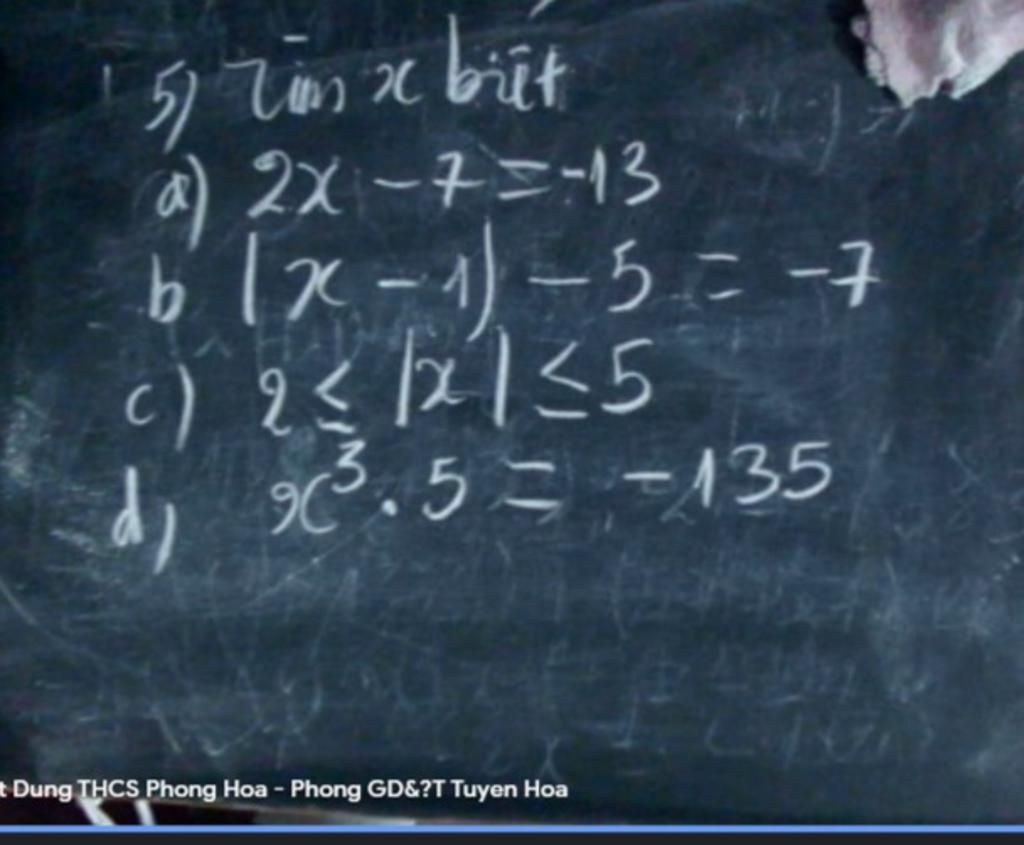 5) Tìm x biết
a) 2x - 7 = -13
b |x - 1| - 5 = -7
c) 2 ≤ |x| ≤ 5
d) x³ . 5 = -135
t Dung THCS Phong Hoa - Phong GD&?T Tuyen Hoa